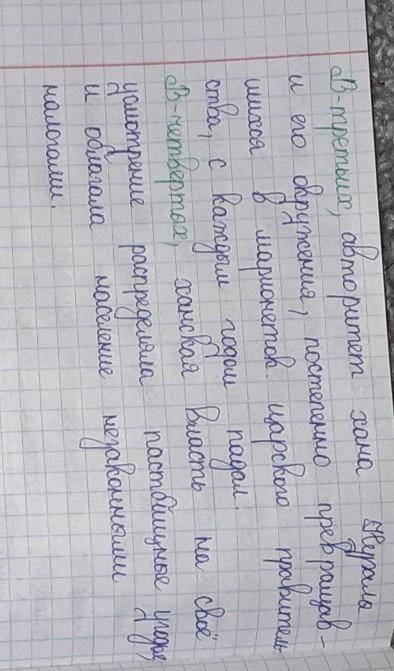 В-третьих, авторитет хана Нуралы
и его окружения, постепенно превращав-
шихся в марионетов царского правитель
ства, с каждым годом падал.
В-четвертых, ханская власть на своё
усмотрение распределяла пастбищные угодья
и облагала население незаконными
налогами.